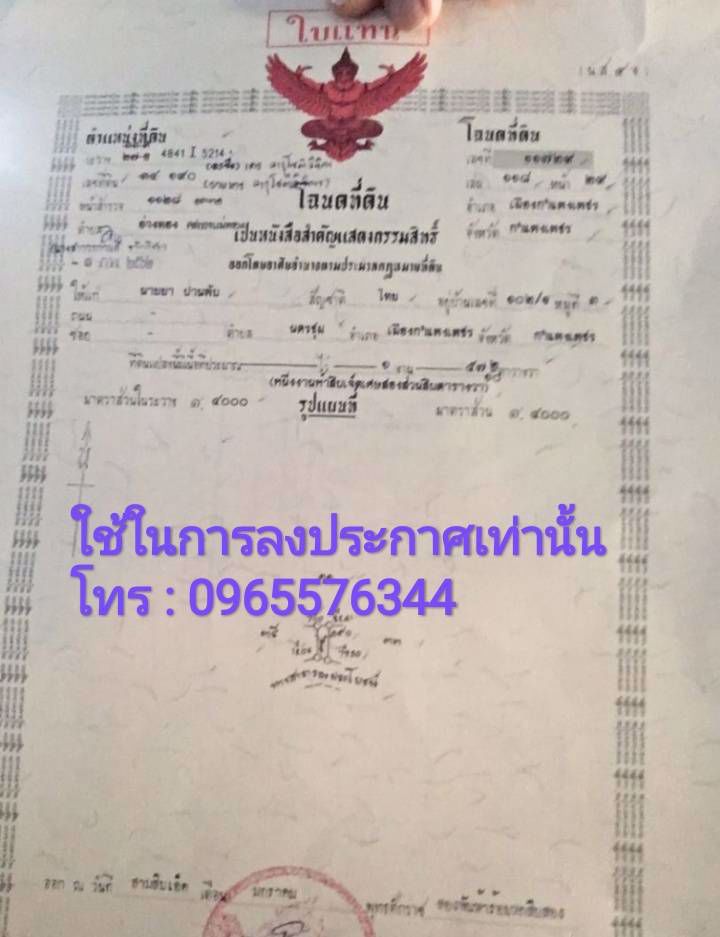 ใบแทน
(น.ส. ๔ จ)
ตำแหน่งที่ดิน
โฉนดที่ดิน
ระวาง 4841 I 5214
เลขที่ ๑๑๗๒๙
เลขที่ดิน ๑๙๐
เล่ม ๑๑๘ หน้า ๒๙
หน้าสำรวจ ๑๑๒๘
โฉนดที่ดิน
อำเภอ เมืองกำแพงเพชร
ตำบล อ่างทอง
เป็นหนังสือสำคัญแสดงกรรมสิทธิ์
จังหวัด กำแพงเพชร
ออกโดยอาศัยอำนาจตามประมวลกฎหมายที่ดิน
ให้แก่ นายยา ปานพับ สัญชาติ ไทย อยู่บ้านเลขที่ ๑๐๒/๑ หมู่ที่ ๓
ถนน -
ซอย - ตำบล นครชุม อำเภอ เมืองกำแพงเพชร จังหวัด กำแพงเพชร
ที่ดินแปลงนี้มีเนื้อที่ประมาณ - ไร่ ๑ งาน ตารางวา
มาตราส่วนในระวาง ๑: ๔๐๐๐ รูปแผนที่ มาตราส่วน ๑: ๔๐๐๐
น
ใช้ในการลงประกาศเท่านั้น
โทร : 0965576344
๓๕ ๓๓
ทางสาธารณประโยชน์
ออก ณ วันที่ สามสิบเอ็ด เดือน มกราคม พุทธศักราช สองพันห้าร้อยสามสิบสอง